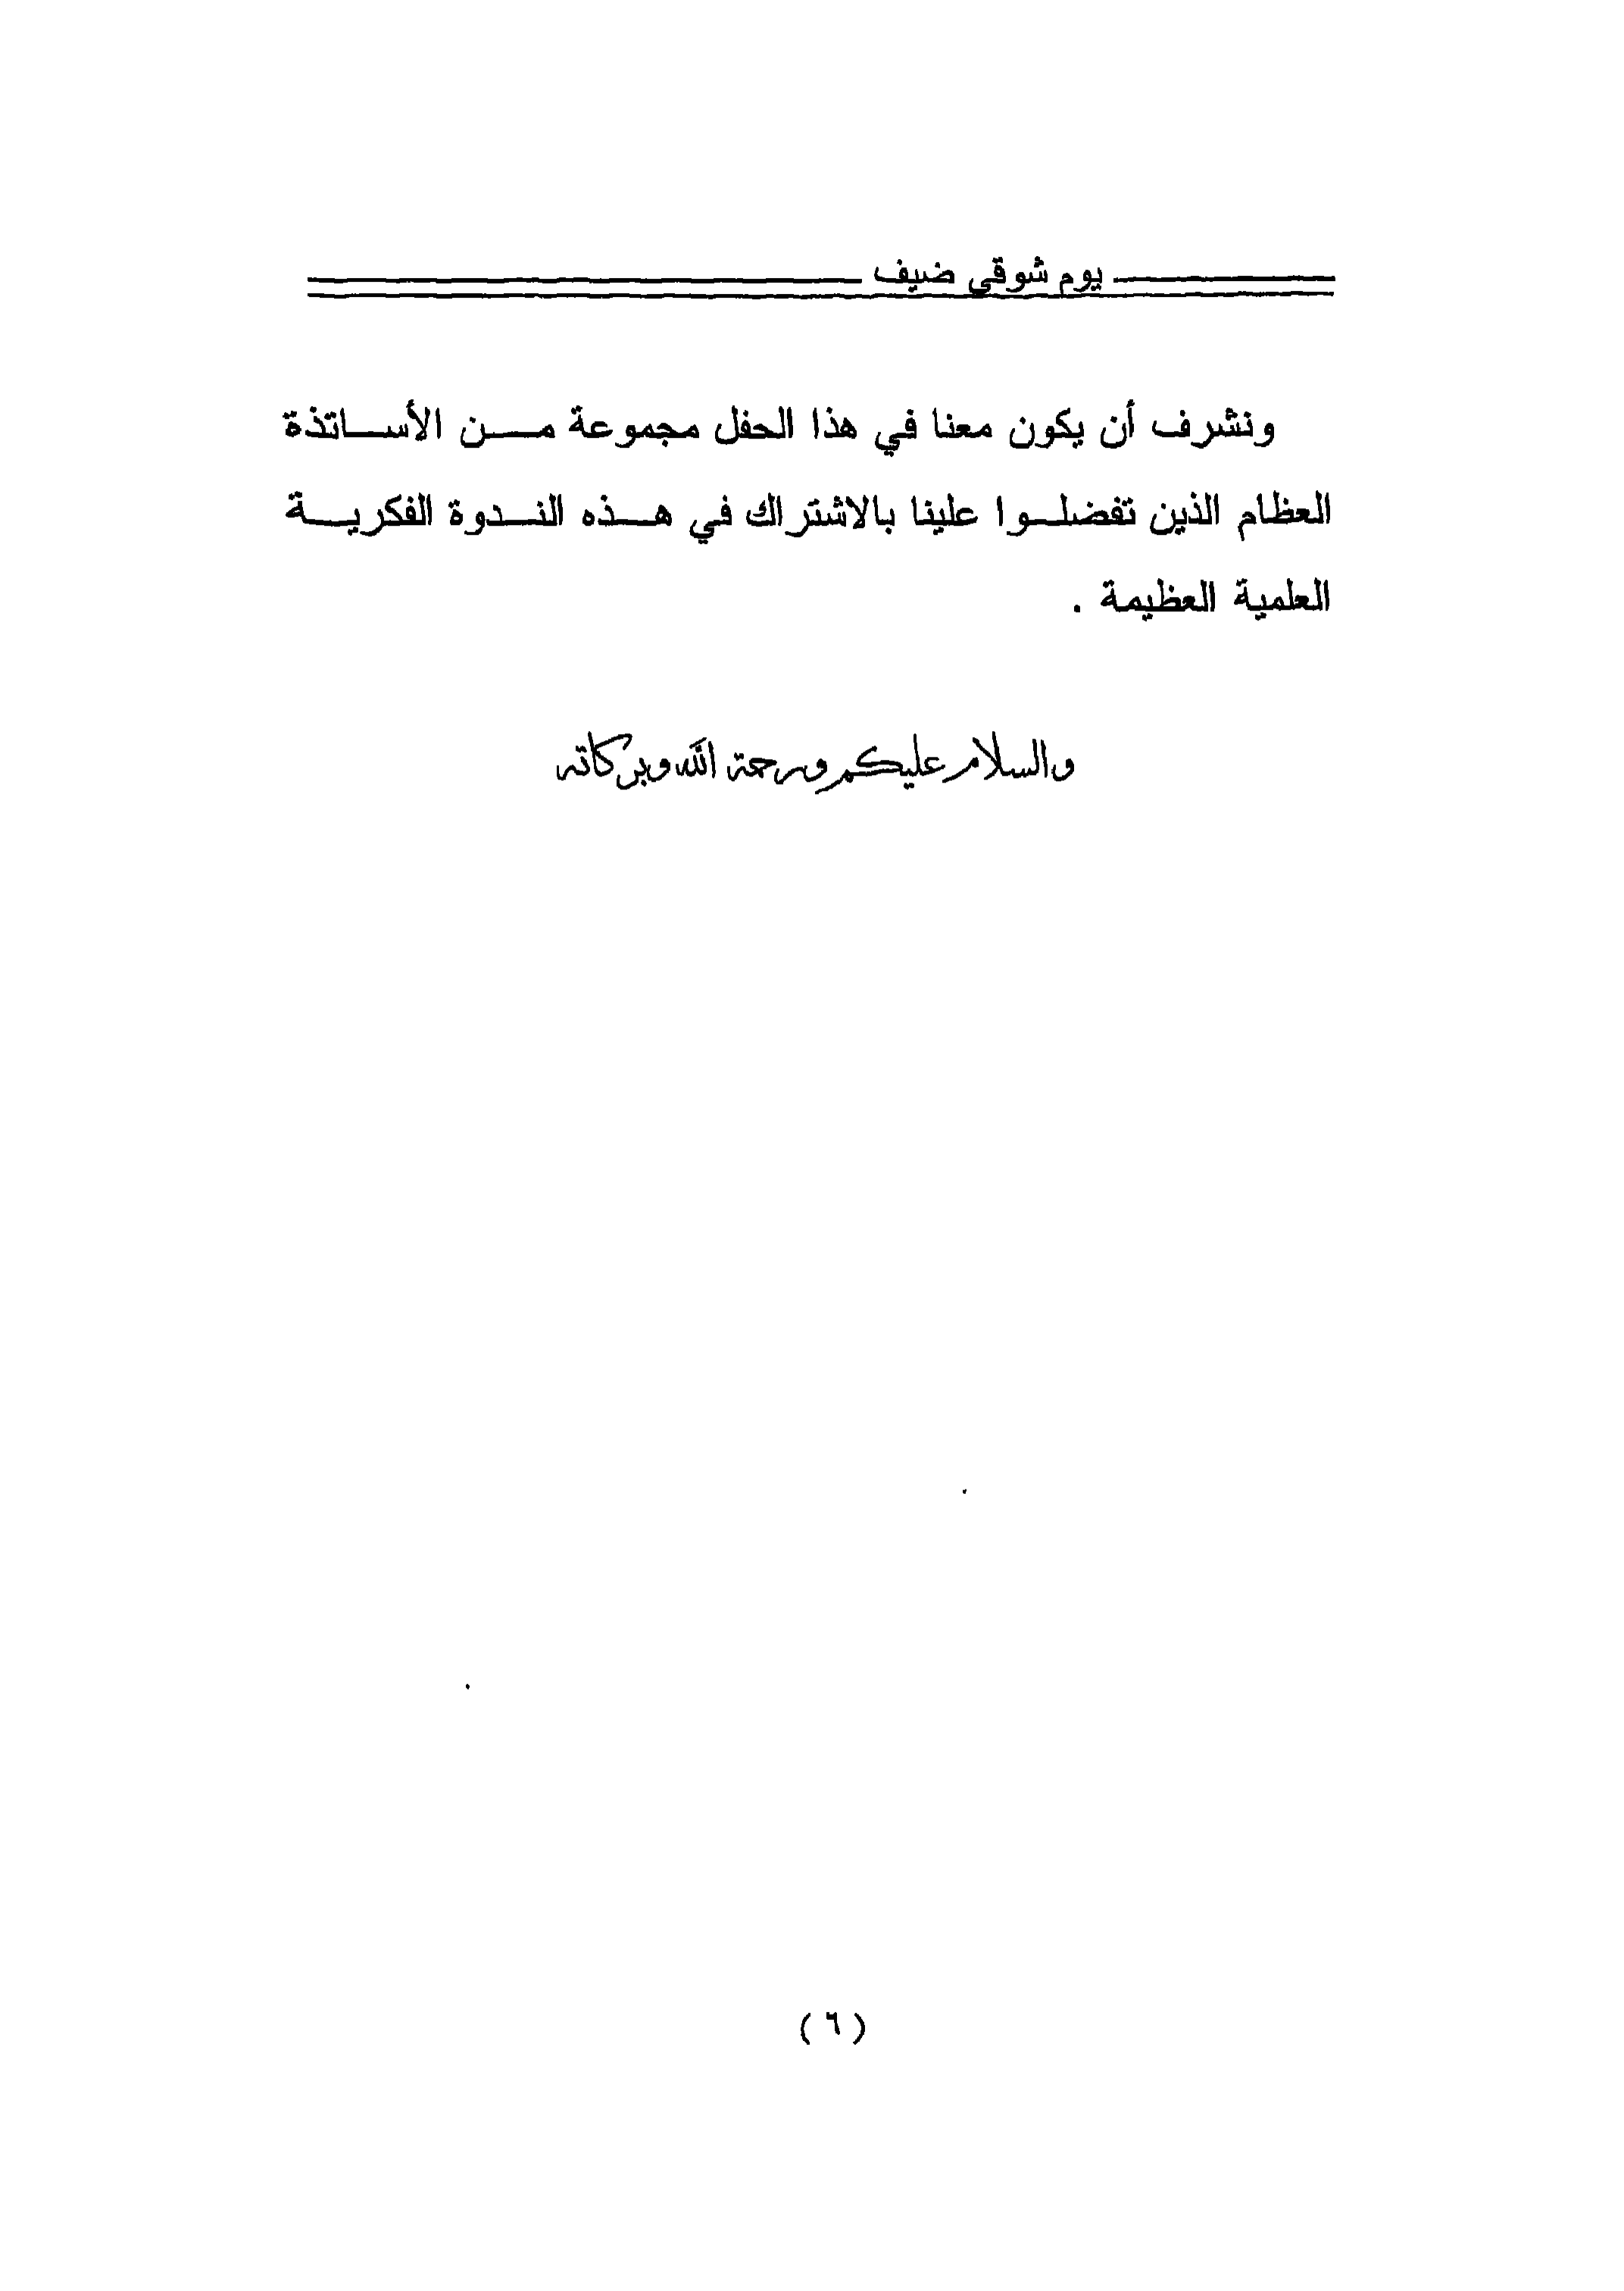 يوم شوقي ضيف
ونشرف أن يكون معنا في هذا الحفل مجموعة من الأساتذة
العظام الذين تفضلوا علينا بالاشتراك في هذه الندوة الفكرية
العلمية العظيمة .
والسلام عليكم ورحمة الله وبركاته
( ٦ )